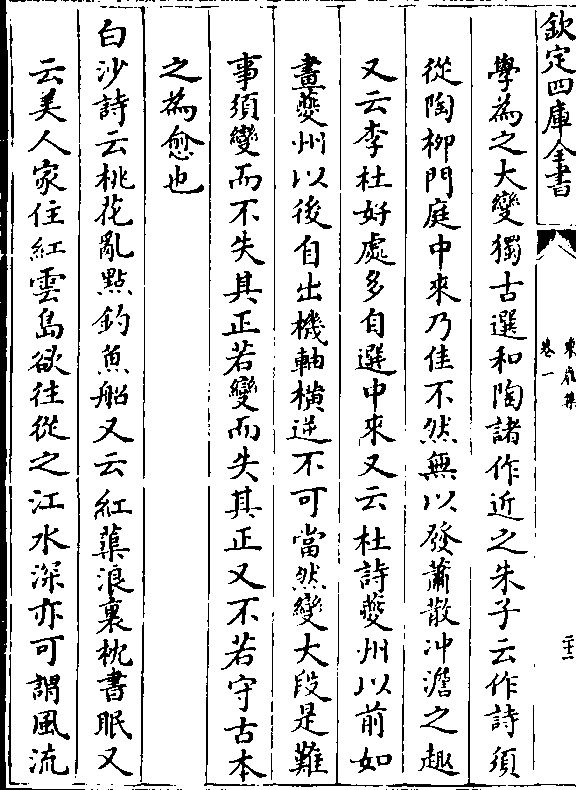 欽定四庫全書
卷一
學為之大變獨古選和陶諸作近之朱子云作詩須
從陶柳門庭中來乃佳不然無以發蕭散冲澹之趣
又云李杜好處多自選中來又云杜詩夔州以前如
畫夔州以後自出機軸橫逆不可當然變大段是難
事須變而不失其正若變而失其正又不若守古本
之為愈也
白沙詩云桃花亂點釣魚船又云紅蕖浪裏枕書眠又
云美人家住紅雲島欲往從之江水深亦可謂風流